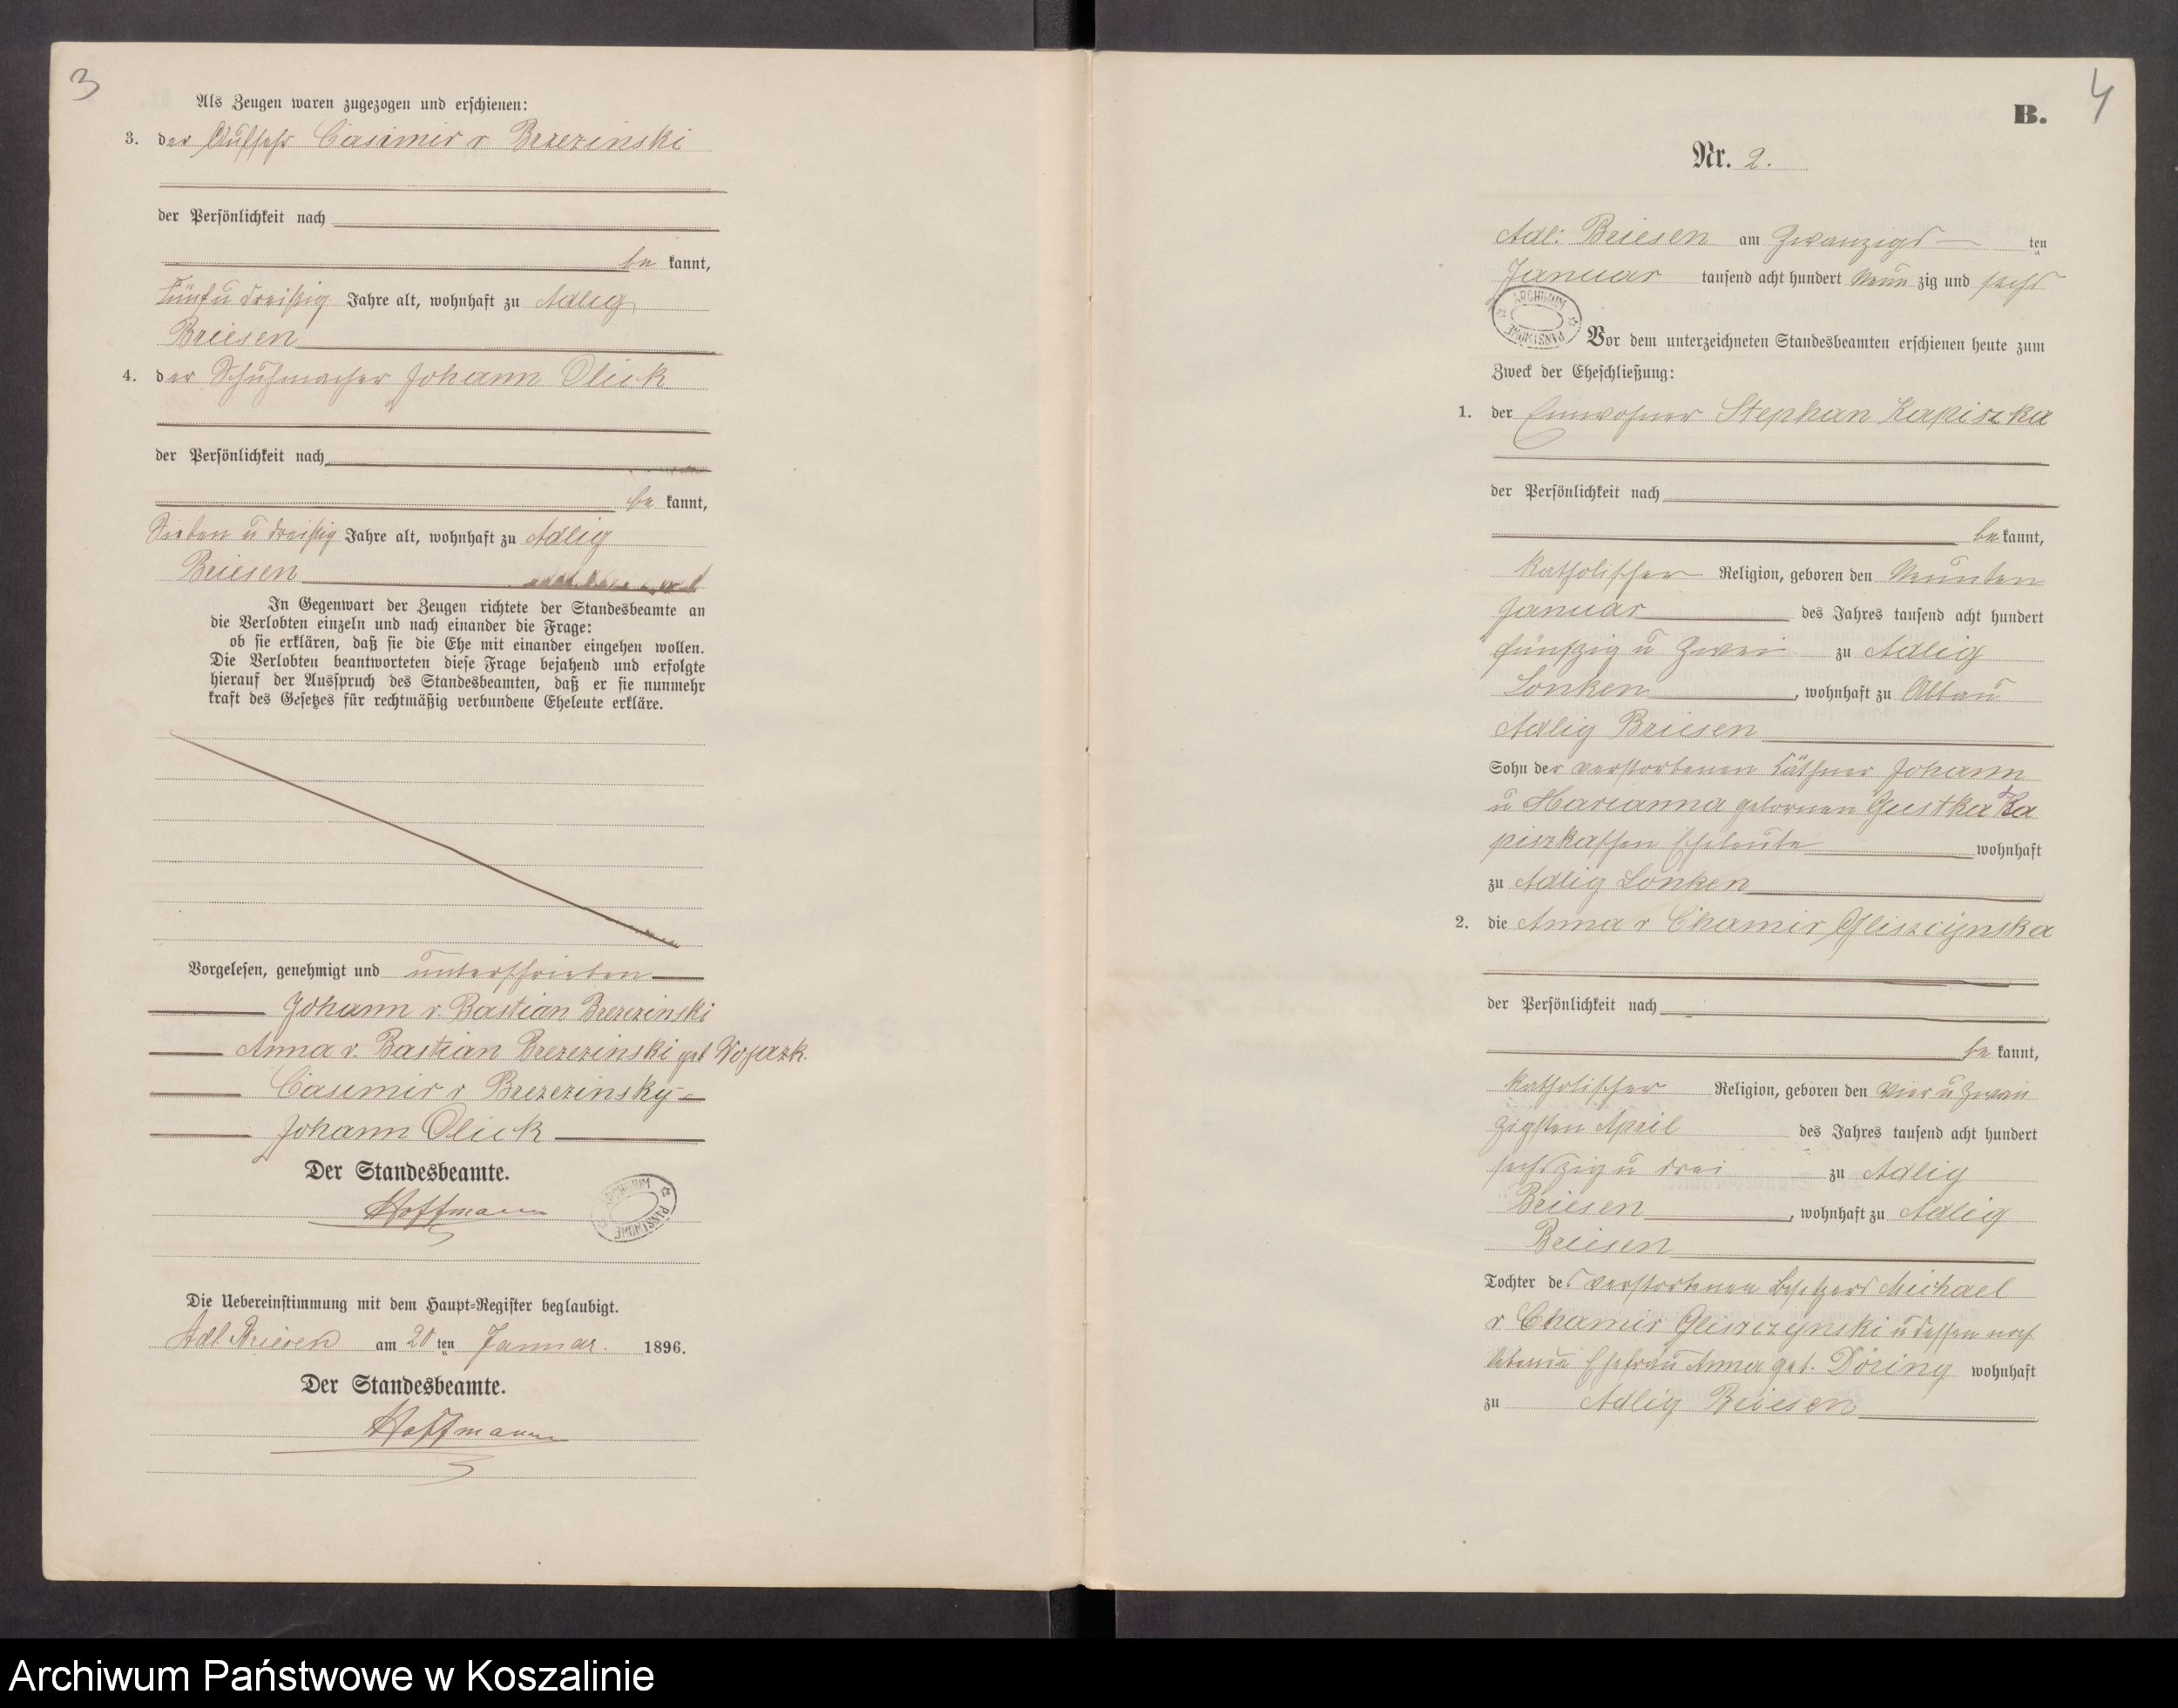 3
Als Zeugen waren zugezogen und erschienen:
3. der Casimir v Brzezinski
der Persönlichkeit nach
be kannt,
Fünf u dreißig Jahre alt, wohnhaft zu Adlig
Briesen
4. der Schuhmacher Johann Olick
der Persönlichkeit nach
be kannt,
Sieben u dreißig Jahre alt, wohnhaft zu Adlig
Briesen
In Gegenwart der Zeugen richtete der Standesbeamte an
die Verlobten einzeln und nach einander die Frage:
ob sie erklären, daß sie die Ehe mit einander eingehen wollen.
Die Verlobten beantworteten diese Frage bejahend und erfolgte
hierauf der Ausspruch des Standesbeamten, daß er sie nunmehr
kraft des Gesetzes für rechtmäßig verbundene Eheleute erkläre.
Vorgelesen, genehmigt und unterschrieben
Johann v. Bastian Brzezinski
Anna v. Bastian Brzezinski geb
Casimir v Brzezinsky
Johann Olick
Der Standesbeamte.
Hoffmann
ARCHIWUM PAŃSTWOWE
Die Uebereinstimmung mit dem Haupt=Register beglaubigt.
Adl. Briesen am 20 ten Januar. 1896.
Der Standesbeamte.
Hoffmann
4
B.
Nr. 2.
Adl: Briesen am Zwanzigs ten
Januar tausend acht hundert Neun zig und sechs
ARCHIWUM PAŃSTWOWE
Vor dem unterzeichneten Standesbeamten erschienen heute zum
Zweck der Eheschließung:
1. der Einwohner Stephan Kapiszka
der Persönlichkeit nach
be kannt,
katholischer Religion, geboren den Neunten
Januar des Jahres tausend acht hundert
fünfzig u zwei zu Adlig
Lonken, wohnhaft zu Abbau
Adlig Briesen
Sohn der verstorbenen Käthner Johann
u Marianna gebornen Ka
piszkaschen Eheleute wohnhaft
zu Adlig Lonken
2. die Anna v Chamir Gliszczynska
der Persönlichkeit nach
be kannt,
katholischer Religion, geboren den vier u zwan
zigsten April des Jahres tausend acht hundert
sechszig u drei zu Adlig
Briesen, wohnhaft zu Adlig
Briesen
Tochter des verstorbenen Besitzers Michael
v Chamir Gliszczynski u dessen noch
lebende Ehefrau Anna geb. Döring wohnhaft
zu Adlig Briesen
Archiwum Państwowe w Koszalinie